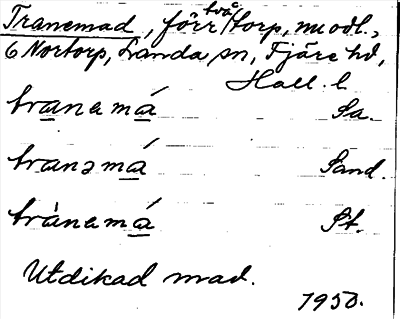 Tranemad, förr två torp, nu odl.,
6 Nortorp, Landa sn, Fjäre hd,
Hall. l
tranamá Sa.
tranəmá Sand.
trànamá St.
Utdikad mad.
1950.